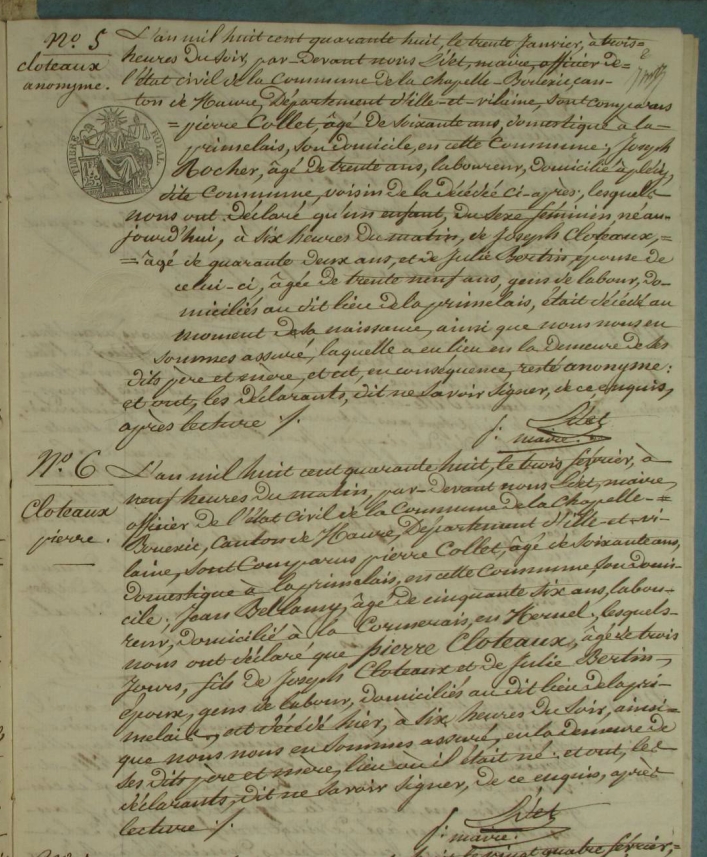 N.º 5
cloteaux
anonyme.
L'an mil huit cent quarante huit, le trente Janvier, à trois=
heures Du Soir, par-Devant nous Lidet, maire, officier De=
l'état civil de la Commune de la chapelle-Bouëxic, can-
ton de Maure, Département d'ille-et-vilaine, sont comparus
=pierre Collet, âgé De soixante ans, domestique à la-
primelais, son domicile, en cette Commune; Joseph
Rocher, âgé de trente ans, laboureur, Domicilié à
dite Commune, voisin de la décédée ci-après; lesquels
nous ont déclaré qu'un enfant, Du sexe féminin, né au-
jourd'hui, à six heures Du matin, de Joseph Cloteaux,=
=âgé de quarante Deux ans, et de Julie Bertin, épouse de
celui-ci, âgée de trente neuf ans, gens de labour, Do-
miciliés au dit lieu de la primelais, était décédé au
moment de sa naissance, ainsi que nous nous en
sommes assuré, laquelle a eu lieu en la Demeure de ses
dits père et mère, et est, en conséquence, resté anonyme:
et ont, les déclarants, dit ne savoir signer, de ce enquis,
après lecture ./.
Lidet
f: maire.
TIMBRE ROYAL
N.º 6
Cloteaux
pierre.
L'an mil huit cent quarante huit, le trois février, à
neuf heures du matin, par-devant nous Lidet, maire,
officier de l'état Civil de la Commune de la Chapelle-=
Bouëxic, Canton de Maure, Département d'ille-et-vi-
laine, sont Comparus pierre Collet, âgé de soixante ans,
domestique à la primelais, en cette Commune, son domi-
cile; Jean Bellamy, âgé de cinquante six ans, labou-
reur, domicilié à la Cormerais, en Mernel, lesquels-
nous ont déclaré que pierre Cloteaux, âgé de trois
jours, fils de Joseph Cloteaux et de Julie Bertin,
époux, gens de labour, domiciliés au dit lieu de la pri-
melais, est décédé hier, à six heures du soir, ainsi=
que nous nous en sommes assuré, en la demeure de
ses dits père et mère, lieu où il était né: et ont, les
déclarants, dit ne savoir signer, de ce enquis, après
lecture ./.
Lidet
f: maire.
le vingt quatre février,=